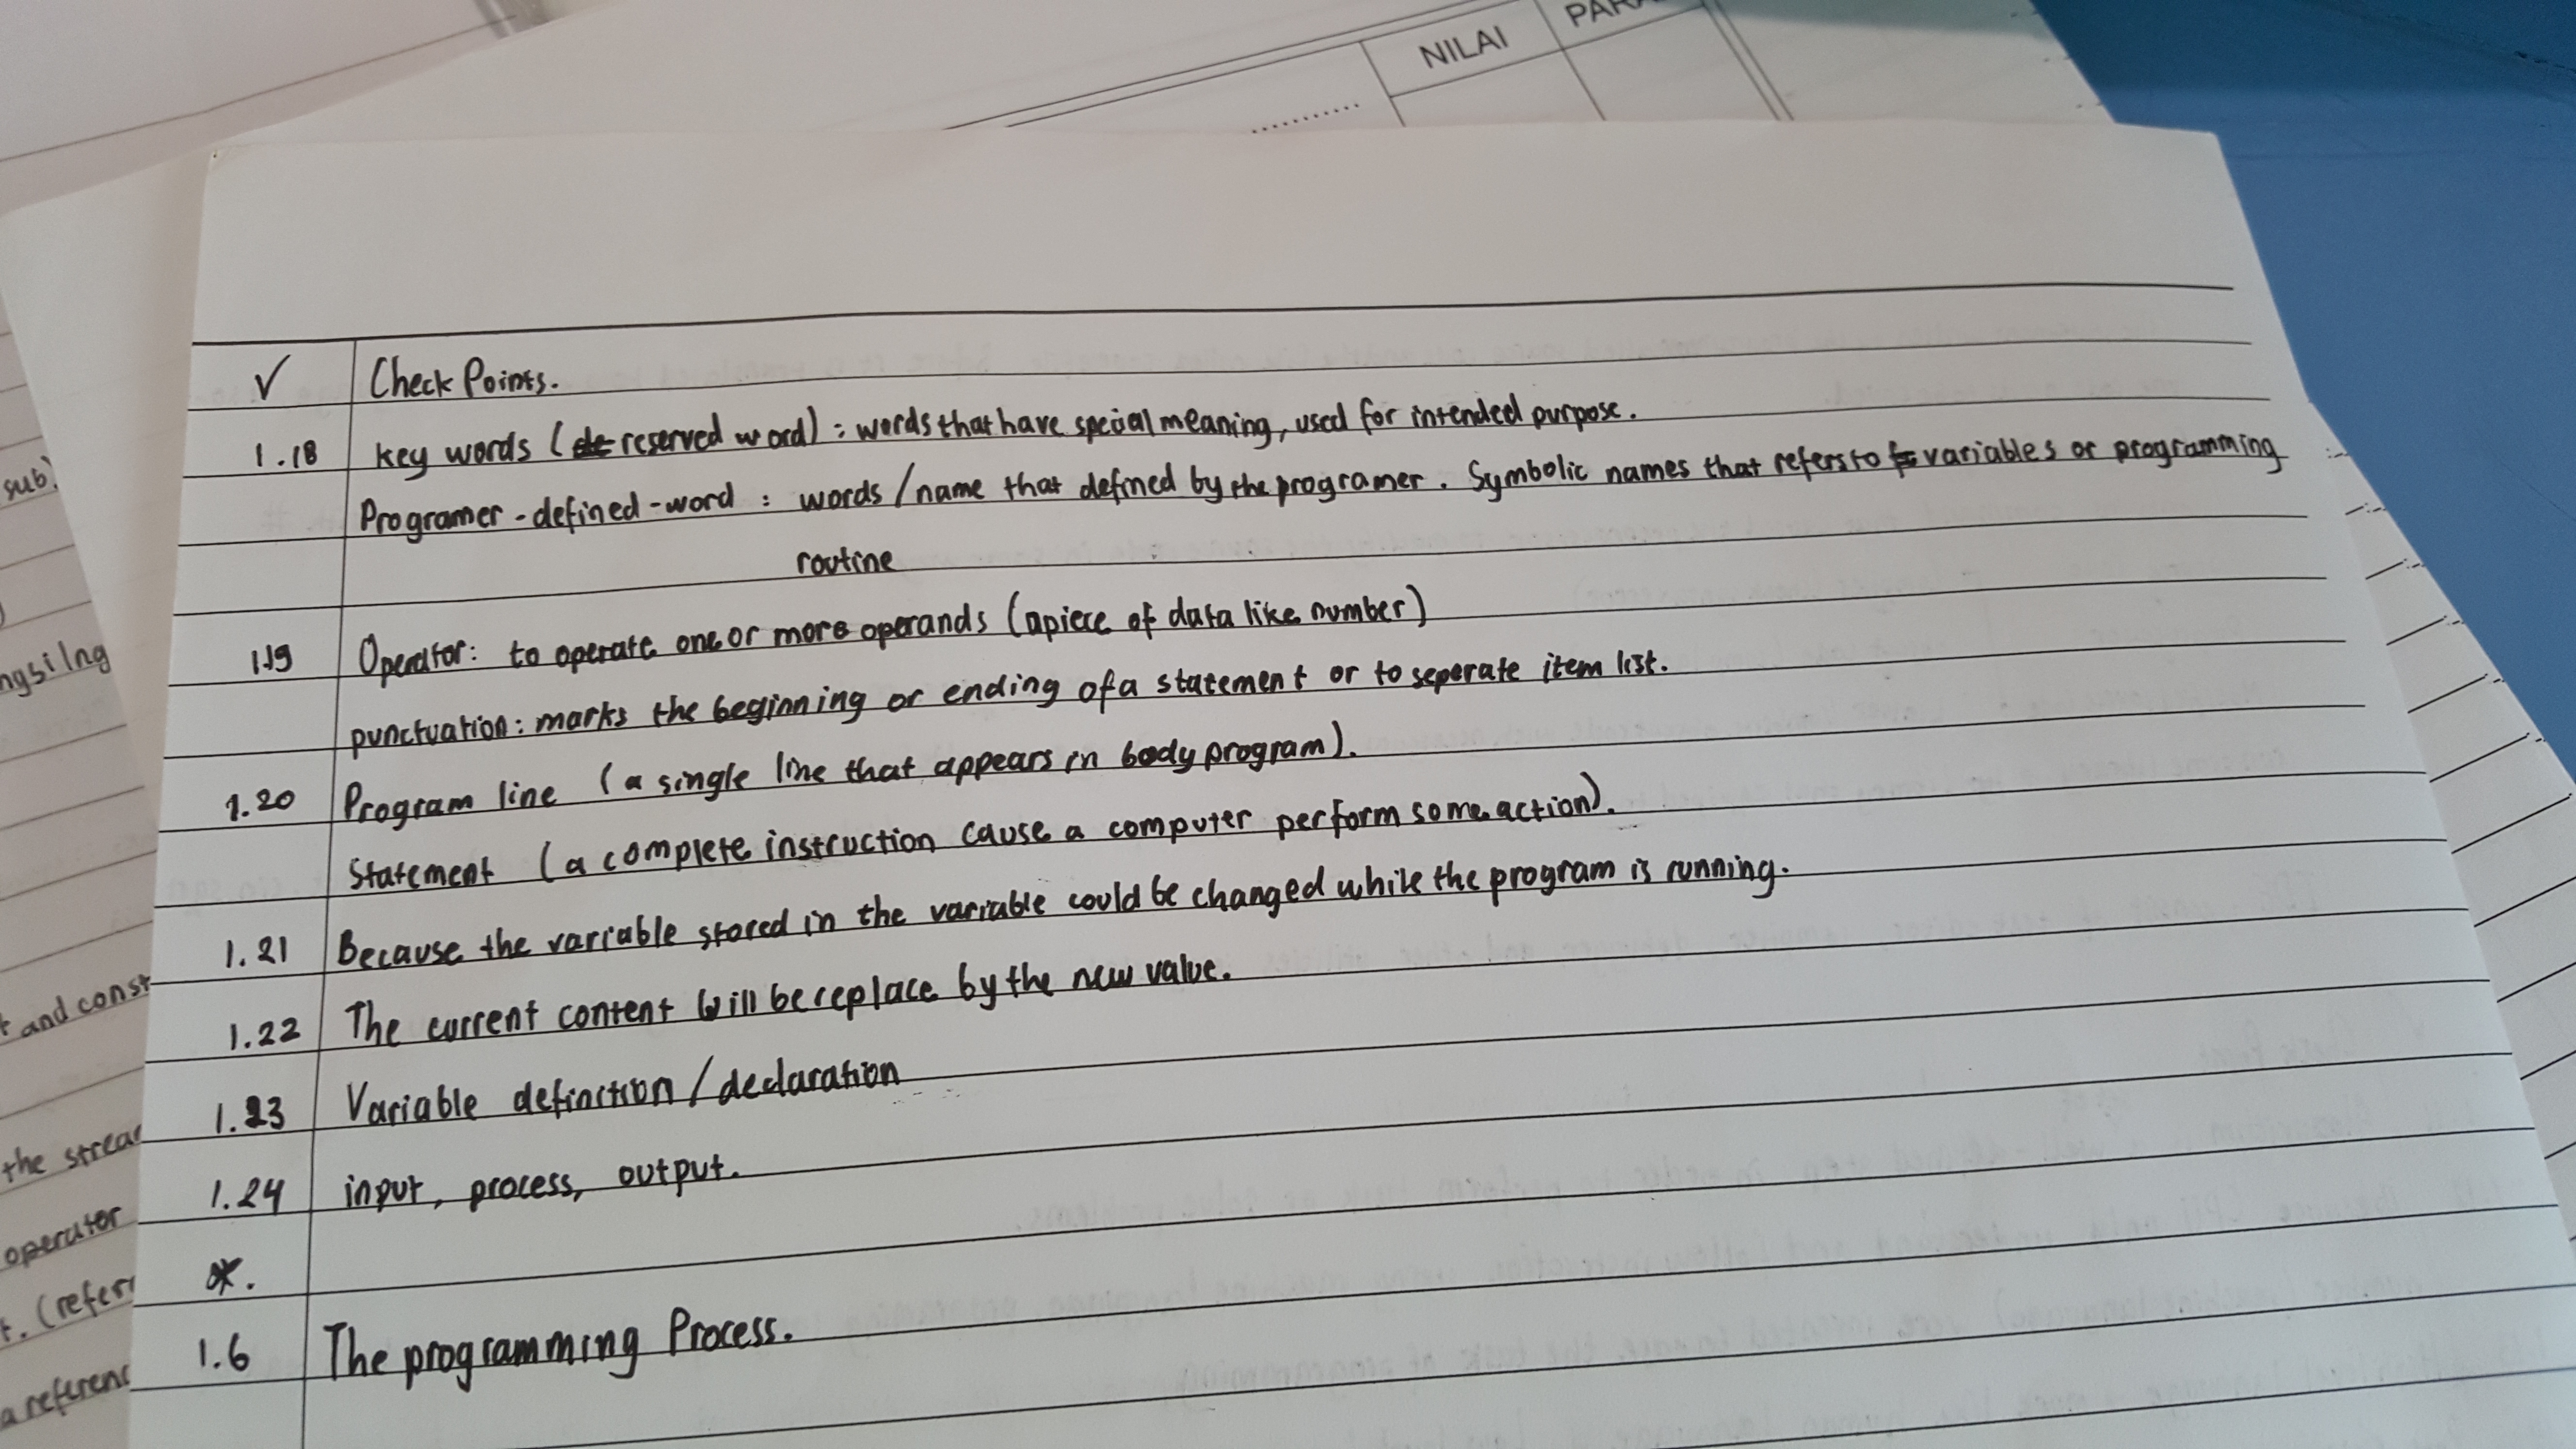 NILAI
✓ Check Points.
1.18 key words (reserved word) : words that have special meaning, used for intended purpose.
Programer-defined-word : words/name that defined by the programer. Symbolic names that refers to variables or programming
routine
1.19 Operator: to operate one or more operands (a piece of data like number)
punctuation: marks the beginning or ending of a statement or to seperate item list.
1.20 Program line (a single line that appears in body program).
Statement (a complete instruction cause a computer perform some action).
1.21 Because the variable stored in the variable could be changed while the program is running.
1.22 The current content will be replace by the new value.
1.23 Variable definiction/declaration
1.24 input, process, output.
*.
1.6 The programming Process.
sub)
ngsi lng
and const
the strea
operator
(refer
a referenc